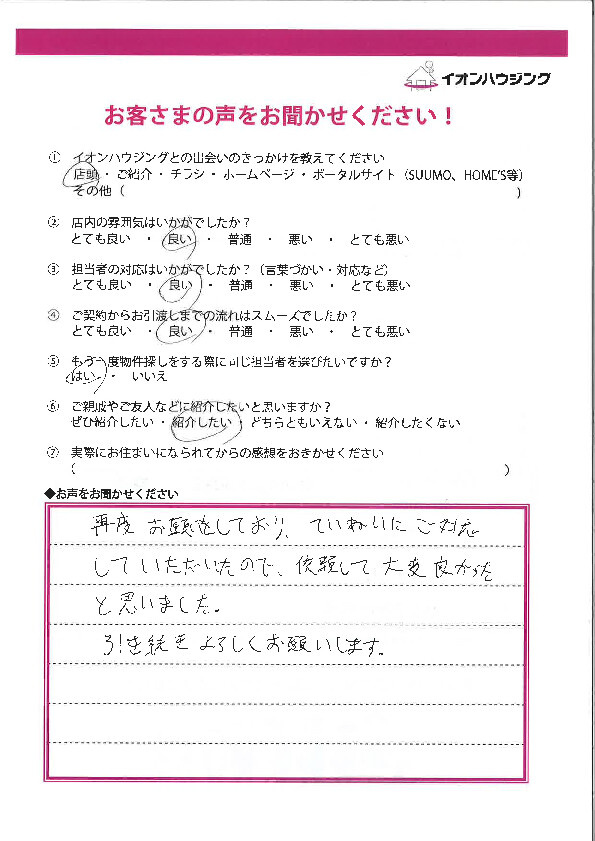 イオンハウジング
お客さまの声をお聞かせください！
① イオンハウジングとの出会いのきっかけを教えてください
店頭 ・ ご紹介 ・ チラシ ・ ホームページ ・ ポータルサイト（SUUMO、HOME'S等）
その他（ ）
② 店内の雰囲気はいかがでしたか？
とても良い ・ 良い ・ 普通 ・ 悪い ・ とても悪い
③ 担当者の対応はいかがでしたか？（言葉づかい・対応など）
とても良い ・ 良い ・ 普通 ・ 悪い ・ とても悪い
④ ご契約からお引渡しまでの流れはスムーズでしたか？
とても良い ・ 良い ・ 普通 ・ 悪い ・ とても悪い
⑤ もう一度物件探しをする際に同じ担当者を選びたいですか？
はい ・ いいえ
⑥ ご親戚やご友人などに紹介したいと思いますか？
ぜひ紹介したい ・ 紹介したい ・ どちらともいえない ・ 紹介したくない
⑦ 実際にお住まいになられてからの感想をおきかせください
（ ）
◆お声をお聞かせください
再度 お願をしており、ていねいに ご対応
していただいたので、依頼して 大変 良かった
と思いました。
引き続き よろしくお願いします。